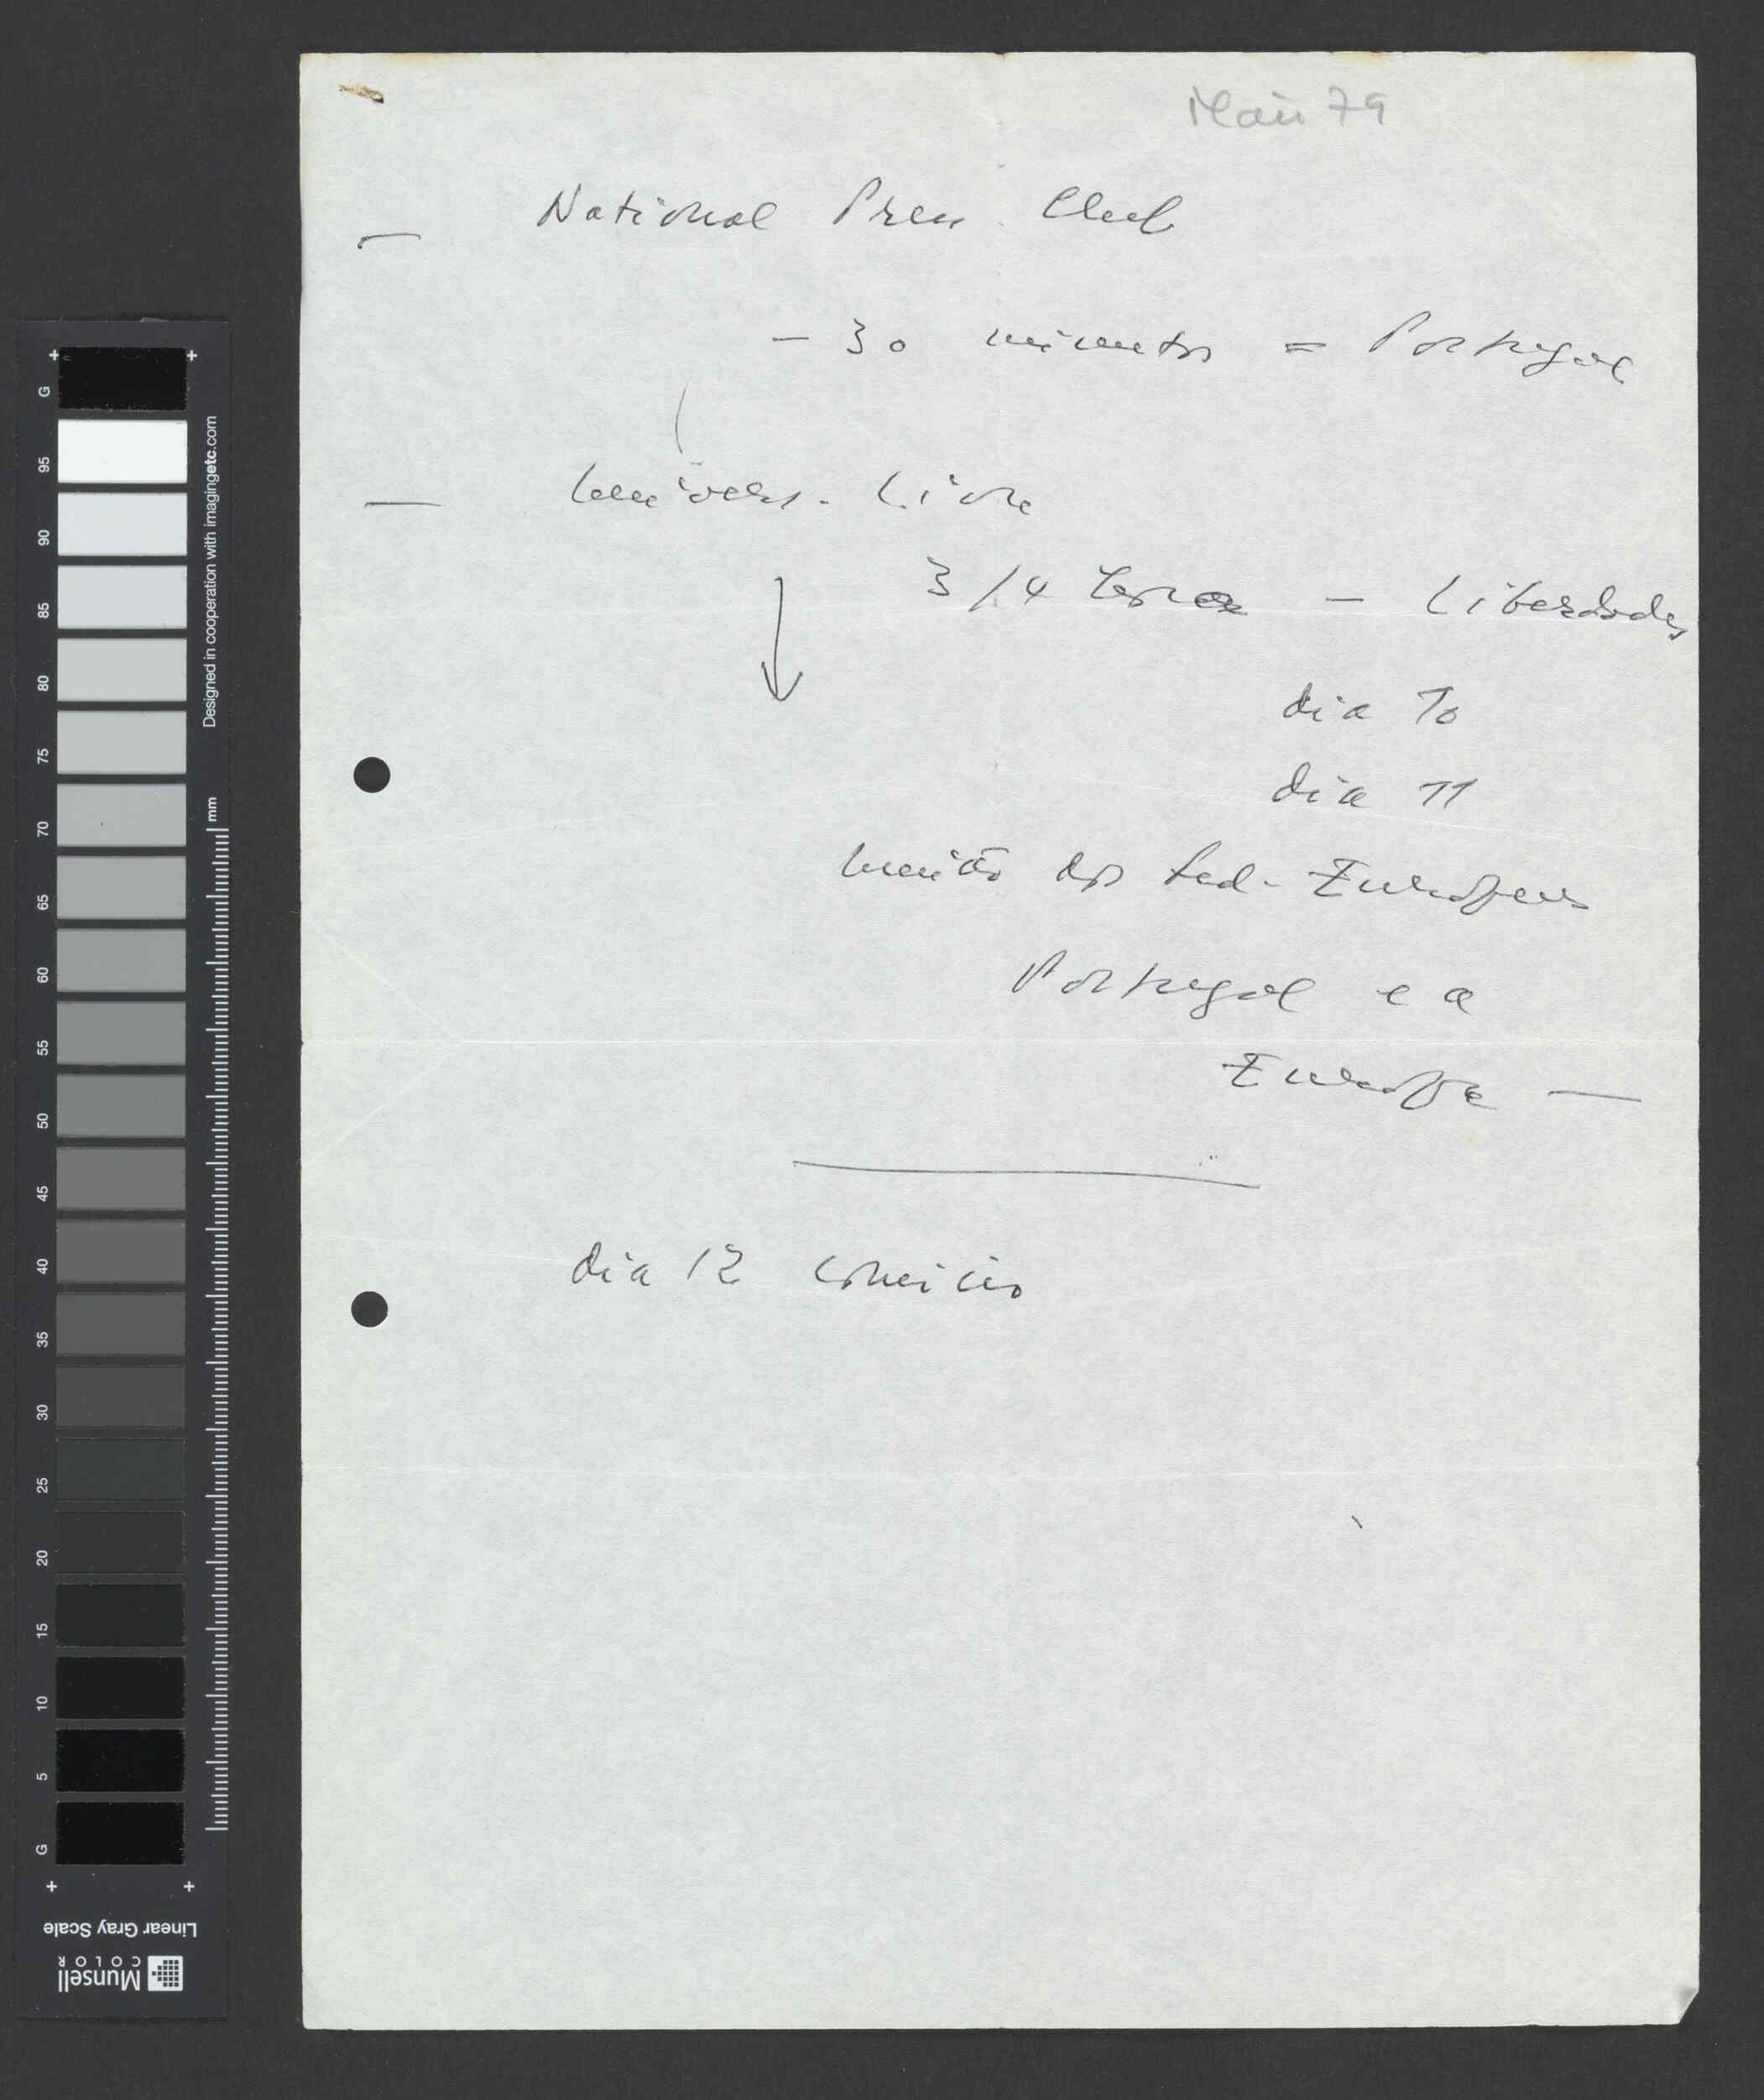 Maio 79
— National Press Club
— 30 minutos = Portugal
— Univers. Livre
3/4 hora — Liberdades
dia 10
dia 11
União dos Fed. Europeus
Portugal e a
Europa —
dia 12 comício
G
95
90
85
80
75
70
65
60
55
50
45
40
35
30
25
20
15
10
5
G
Designed in cooperation with imagingetc.com
mm
Linear Gray Scale
Munsell
COLOR